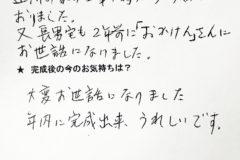 おりました。
又 長男宅も2年前に「おかけん」さんに
お世話になりました。
★ 完成後の今のお気持ちは?
大変お世話になりました
年内に完成出来、うれしいです。